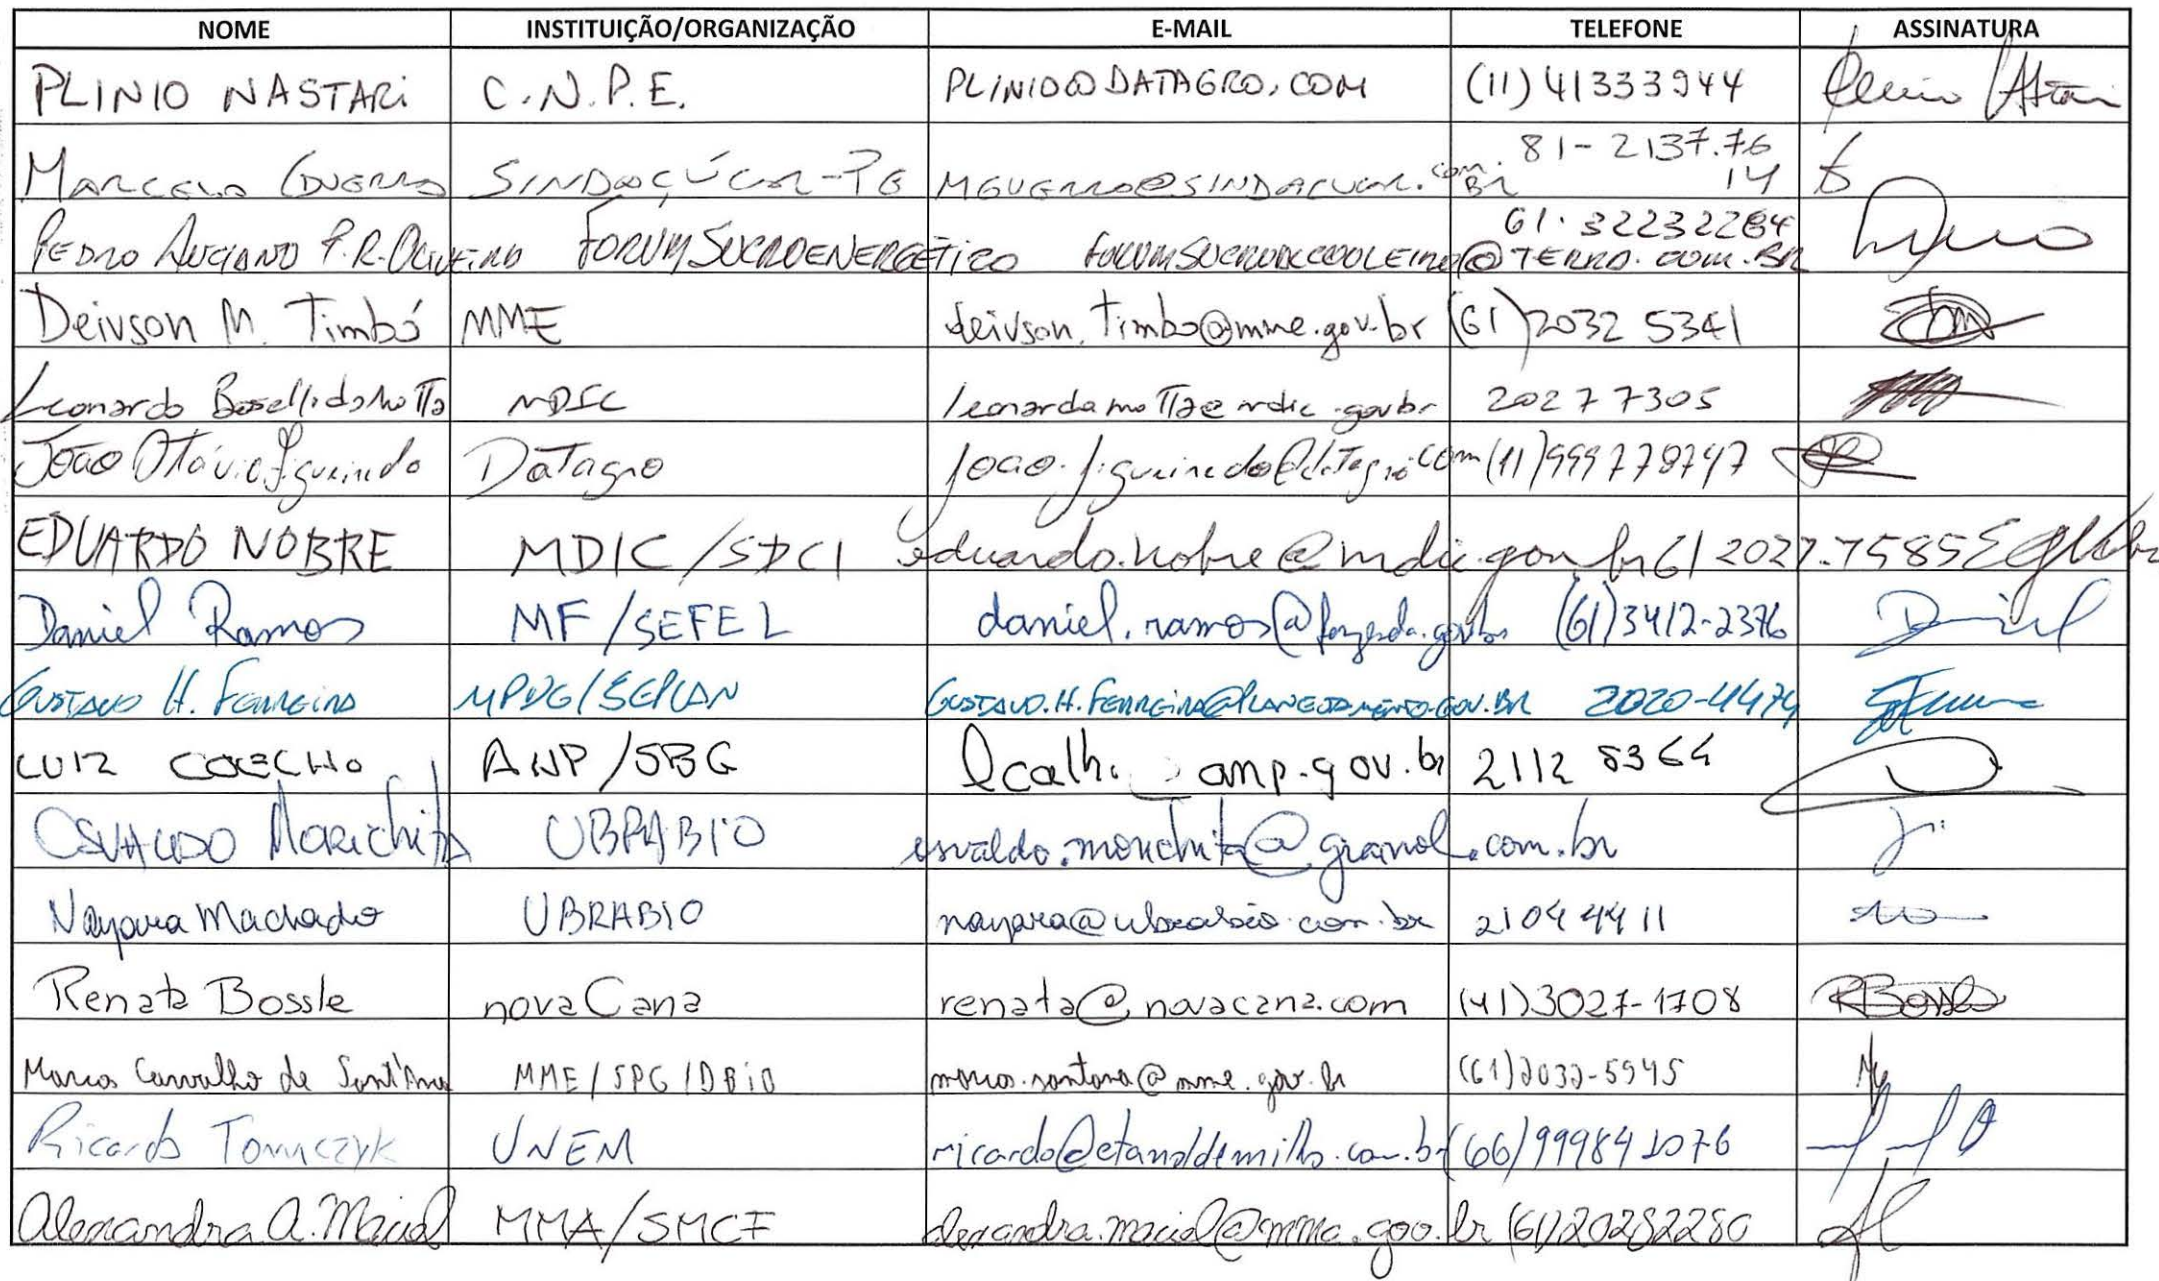 NOME INSTITUIÇÃO/ORGANIZAÇÃO E-MAIL TELEFONE ASSINATURA
PLINIO NASTARI C.N.P.E. PLINIO@DATAGRO.COM (11) 41333944
MARCELO GUERRA SINDAÇÚCAR-PE MGUERRA@SINDACUCAR.COM.BR 81-2137.7614
PEDRO LUCIANO P.R. OLIVEIRA FORUM SUCROENERGÉTICO FORUMSUCROALCOOLEIRO@TERRA.COM.BR 61.32232284
Deivson M. Timbó MME deivson.timbo@mme.gov.br (61)2032 5341
Leonardo Boselli da Motta MDIC leonardo.motta@mdic.gov.br 2027 7305
João Otávio Figueiredo DATAGRO joao.figueiredo@datagro.com (11)999778747
EDUARDO NOBRE MDIC/SDCI eduardo.nobre@mdic.gov.br 61 2027.7585
Daniel Ramos MF/SEFEL daniel.ramos@fazenda.gov.br (61)3412-2376 Daniel
GUSTAVO H. FERREIRA MPDG/SEPLAN GUSTAVO.H.FERREIRA@PLANEJAMENTO.GOV.BR 2020-4474
LUIZ COELHO ANP/SBG anp.gov.br 2112 8364
OSVALDO Morichita UBRABIO osvaldo.morichita@granol.com.br
Nayara Machado UBRABIO nayara@ubrabio.com.br 2104 4411
Renata Bossle novaCana renata@novacana.com (41)3027-1708 RBossle
Marcos Carvalho de Sant'Ana MME/SPG/DBIO marcos.santana@mme.gov.br (61)2032-5945
Ricardo Tomczyk UNEM ricardo@etanoldemilho.com.br (66)999841076
Alexandra A. Maciel MMA/SMCF alexandra.maciel@mma.gov.br (61)20282280